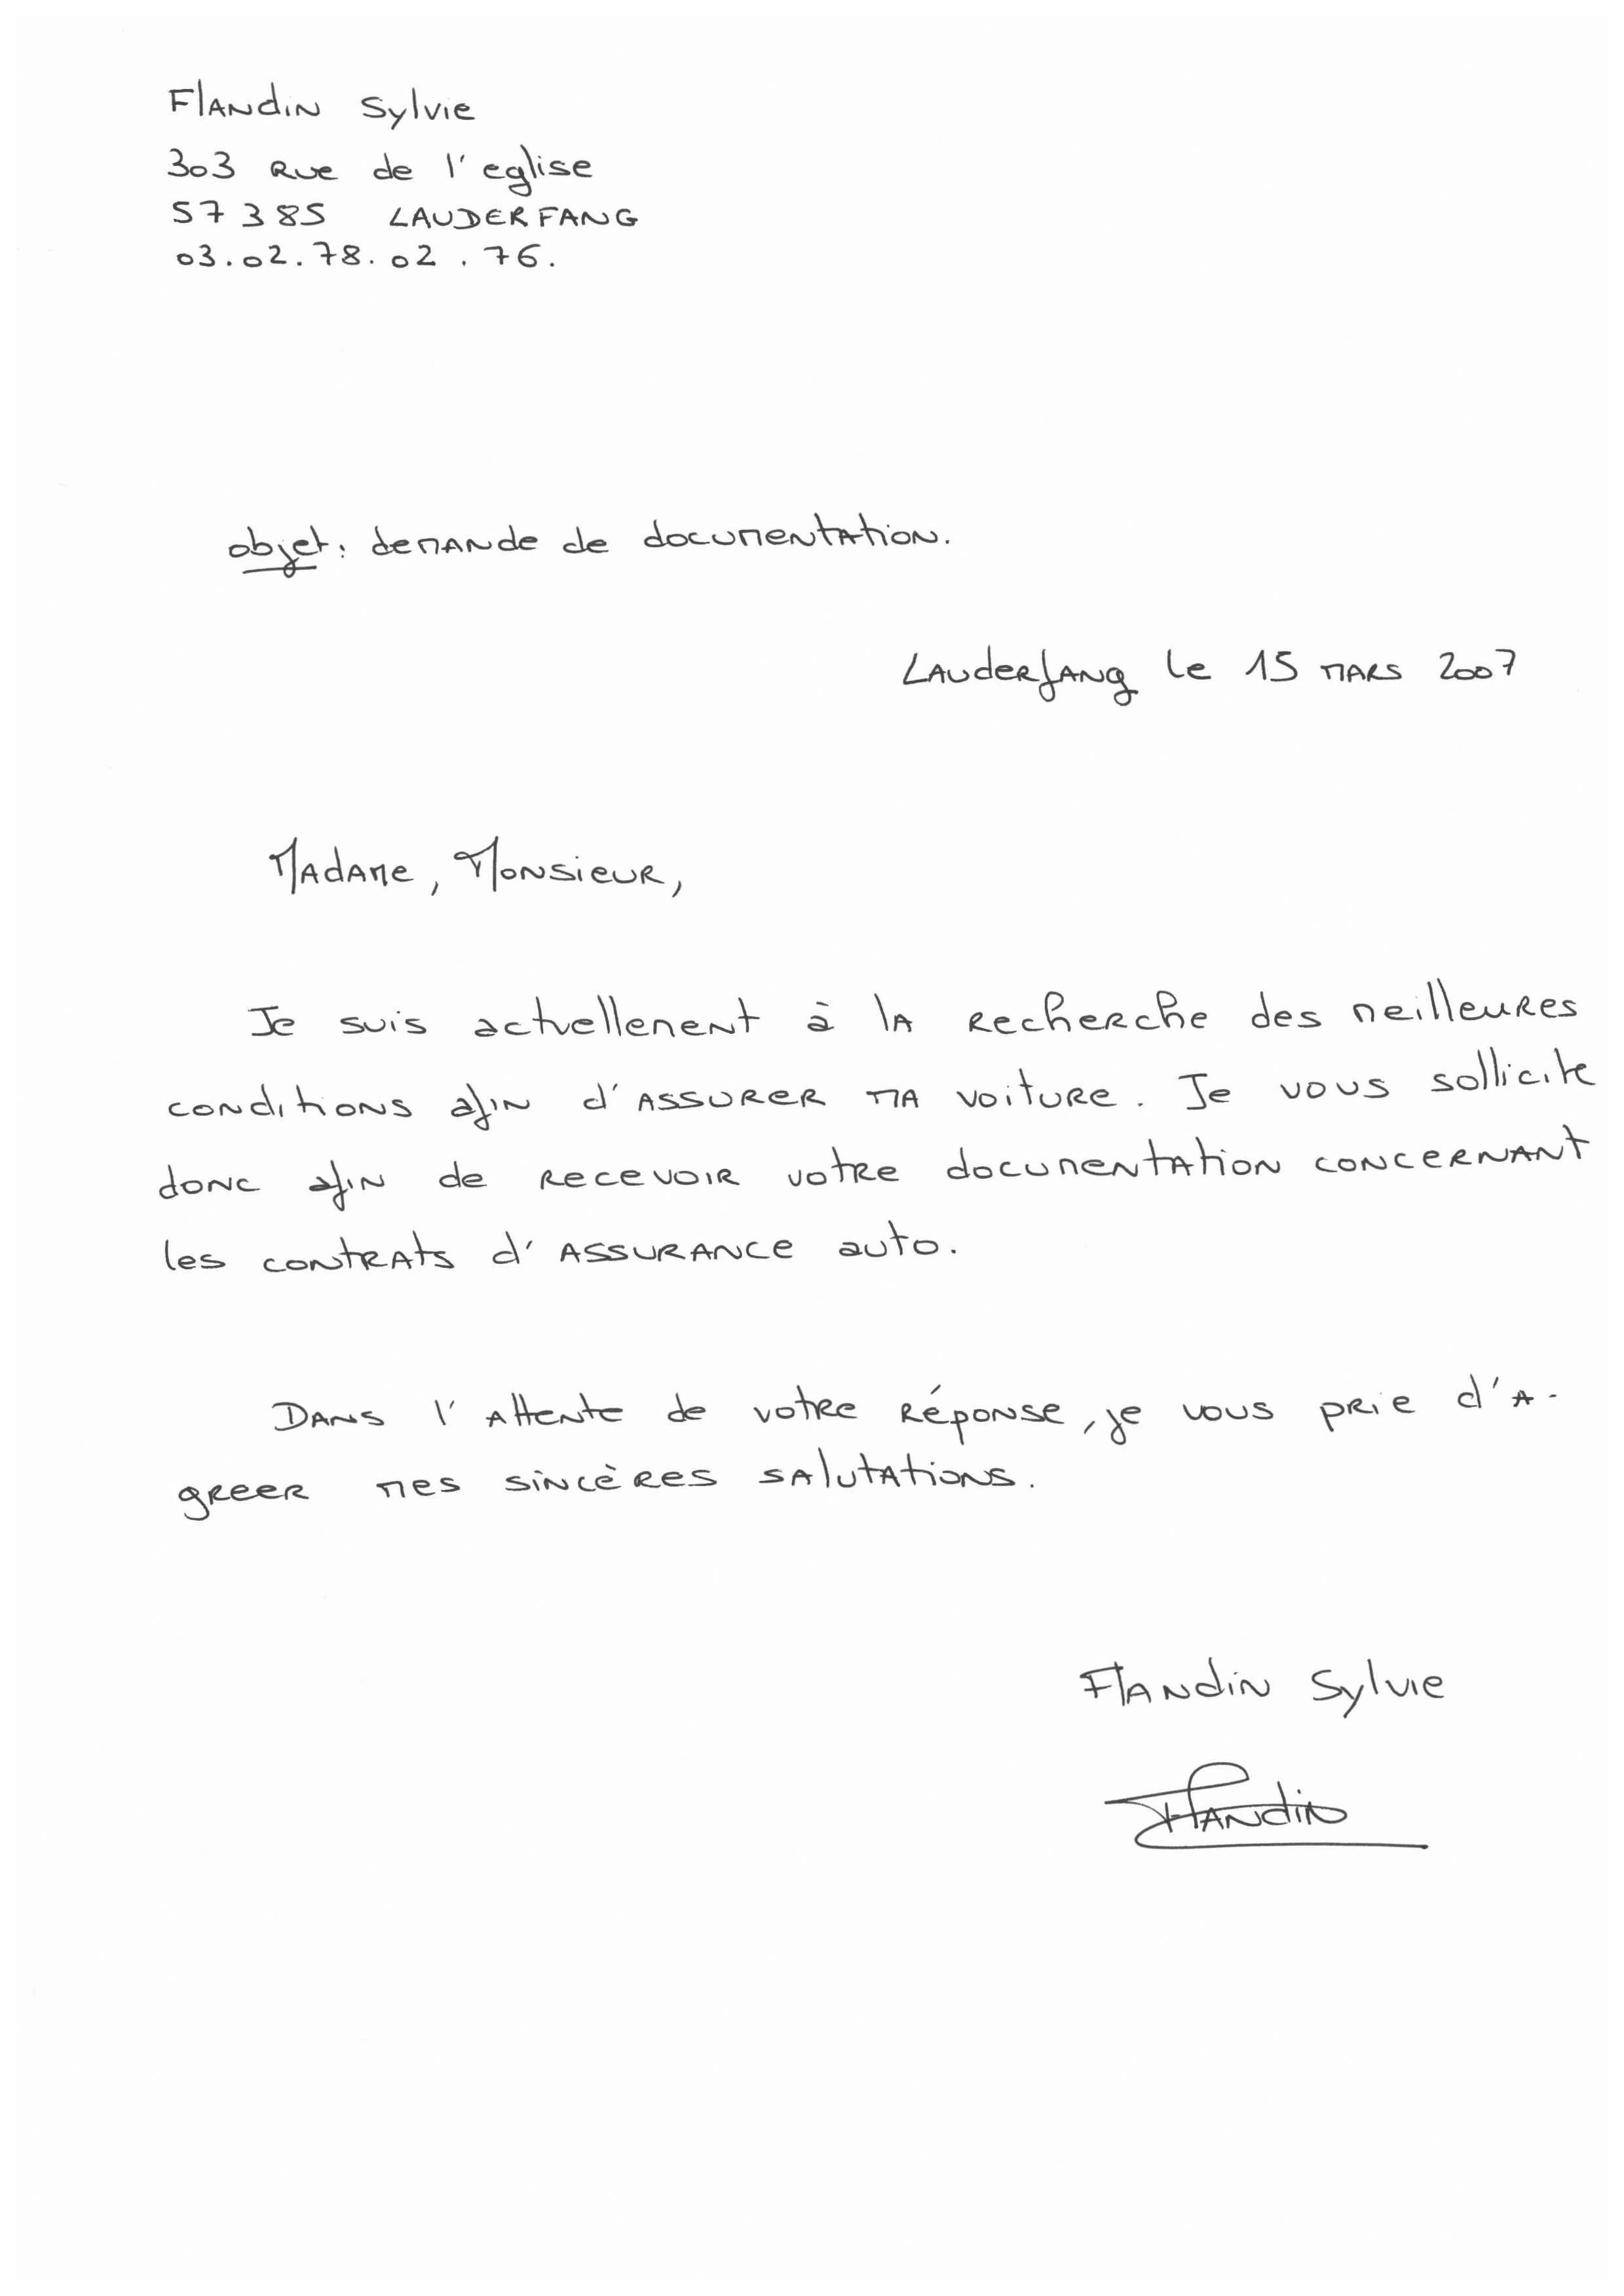 Flandin Sylvie
303 Rue de l'eglise
57385 LAUDERFANG
03.02.78.02.76.
objet: demande de documentation.
Lauderfang le 15 mars 2007
Madame, Monsieur,
Je suis actuellement à la recherche des meilleures
conditions afin d'assurer ma voiture. Je vous sollicite
donc afin de recevoir votre documentation concernant
les contrats d'assurance auto.
Dans l'attente de votre réponse, je vous prie d'a-
greer mes sincères salutations.
Flandin Sylvie
Flandin